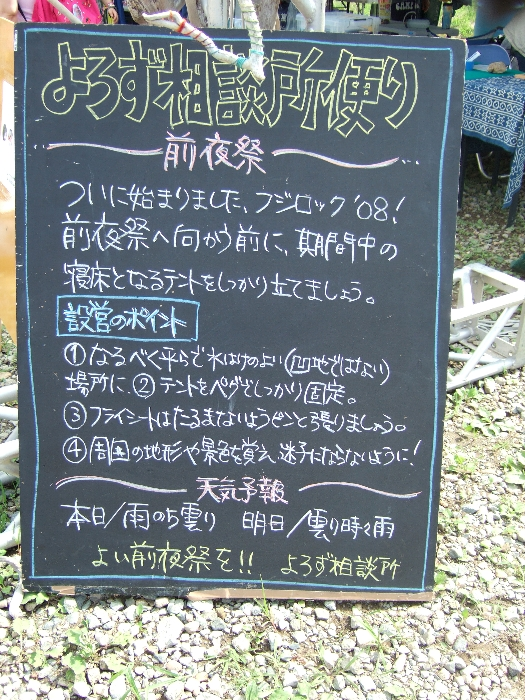 よろず相談所便り
前夜祭
ついに始まりました、フジロック'08!
前夜祭へ向かう前に、期間中の
寝床となるテントをしっかり立てましょう。
設営のポイント
①なるべく平らで水はけのよい(凹地ではない)
場所に、②テントをペグでしっかり固定。
③フライシートはたるまないようピンと張りましょう。
④周囲の地形や景色を覚え、迷子にならないように!
天気予報
本日/雨のち曇り 明日/曇り時々雨
よい前夜祭を!! よろず相談所